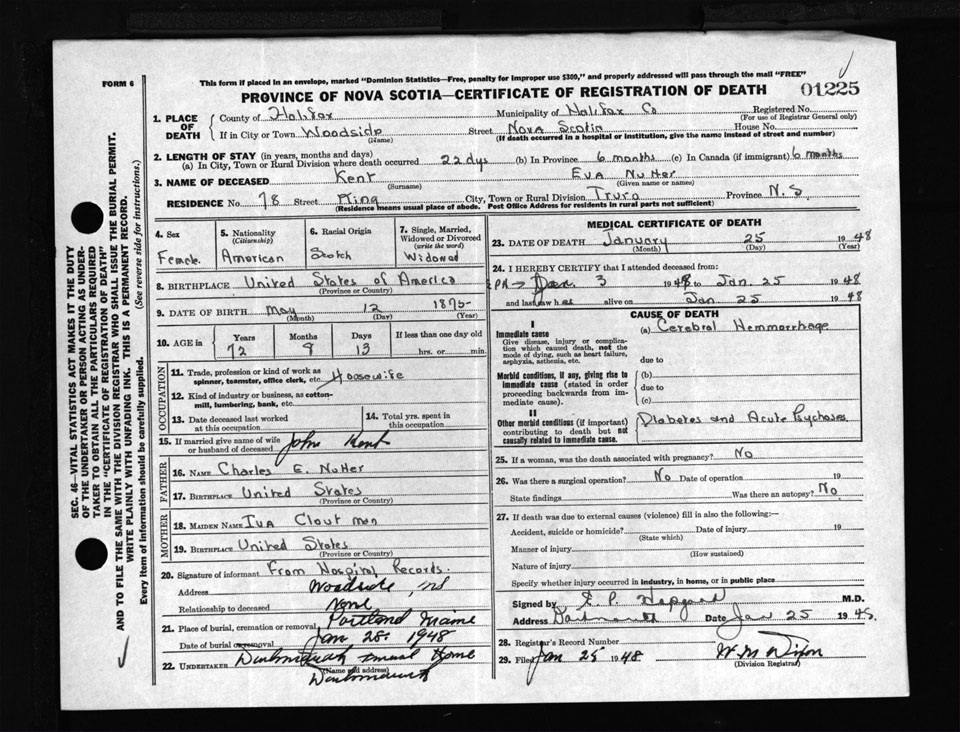 FORM 6
This form if placed in an envelope, marked "Dominion Statistics—Free, penalty for improper use $300," and properly addressed will pass through the mail "FREE"
PROVINCE OF NOVA SCOTIA—CERTIFICATE OF REGISTRATION OF DEATH 01225
1. PLACE OF DEATH { County of Halifax Municipality of Halifax Co Registered No.
(For use of Registrar General only)
If in City or Town Woodside Street Nova Scotia House No.
(Name) (If death occurred in a hospital or institution, give the name instead of street and number)
2. LENGTH OF STAY (in years, months and days)
(a) In City, Town or Rural Division where death occurred 22 dys (b) In Province 6 months (c) In Canada (if immigrant) 6 months
3. NAME OF DECEASED Kent Eva Nutter
(Surname) (Given name or names)
RESIDENCE No. 78 Street King City, Town or Rural Division Truro Province N.S
(Residence means usual place of abode. Post Office Address for residents in rural parts not sufficient)
SEC. 46—VITAL STATISTICS ACT MAKES IT THE DUTY
OF THE UNDERTAKER OR PERSON ACTING AS UNDER-
TAKER TO OBTAIN ALL THE PARTICULARS REQUIRED
IN THE "CERTIFICATE OF REGISTRATION OF DEATH"
AND TO FILE THE SAME WITH THE DIVISION REGISTRAR WHO SHALL ISSUE THE BURIAL PERMIT.
WRITE PLAINLY WITH UNFADING INK. THIS IS A PERMANENT RECORD.
Every item of information should be carefully supplied. (See reverse side for instructions.)
4. Sex
Female
5. Nationality
(Citizenship)
American
6. Racial Origin
Scotch
7. Single, Married,
Widowed or Divorced
(write the word)
Widowed
8. BIRTHPLACE United States of America
(Province or Country)
9. DATE OF BIRTH May 12 1875
(Month) (Day) (Year)
10. AGE in Years Months Days If less than one day old
72 8 13 hrs. or min.
OCCUPATION
11. Trade, profession or kind of work as
spinner, teamster, office clerk, etc. Housewife
12. Kind of industry or business, as cotton-
mill, lumbering, bank, etc.
13. Date deceased last worked
at this occupation
14. Total yrs. spent in
this occupation
15. If married give name of wife
or husband of deceased John Kent
FATHER
16. NAME Charles E. Nutter
17. BIRTHPLACE United States
(Province or Country)
MOTHER
18. MAIDEN NAME Iva Clout man
19. BIRTHPLACE United States
(Province or Country)
20. Signature of informant From Hospital Records.
Address Woodside, NS
Relationship to deceased None
21. Place of burial, cremation or removal Portland Maine
Date of burial or removal Jan 28 1948
22. UNDERTAKER Dartmouth Funeral Home
(Name and address)
Dartmouth
MEDICAL CERTIFICATE OF DEATH
23. DATE OF DEATH January 25 1948
(Month) (Day) (Year)
24. I HEREBY CERTIFY that I attended deceased from:
Jan. 3 1948 to Jan. 25 1948
and last saw h er alive on Jan 25 1948
CAUSE OF DEATH
I
Immediate cause (a) Cerebral Hemmorrhage
Give disease, injury or complica-
tion which caused death, not the
mode of dying, such as heart failure,
asphyxia, asthenia, etc.
due to
Morbid conditions, if any, giving rise to
immediate cause (stated in order
proceeding backwards from im-
mediate cause).
(b)
due to
(c)
II
Other morbid conditions (if important)
contributing to death but not
causally related to immediate cause.
Diabetes and Acute Psychoses
25. If a woman, was the death associated with pregnancy? No
26. Was there a surgical operation? No Date of operation 19
State findings Was there an autopsy? No
27. If death was due to external causes (violence) fill in also the following:—
Accident, suicide or homicide? Date of injury 19
(State which)
Manner of injury
(How sustained)
Nature of injury
Specify whether injury occurred in industry, in home, or in public place
Signed by M.D.
Address Dartmouth Date Jan 25 1948
28. Registrar's Record Number
29. Filed Jan 25 1948 W. M. Dixon
(Division Registrar)